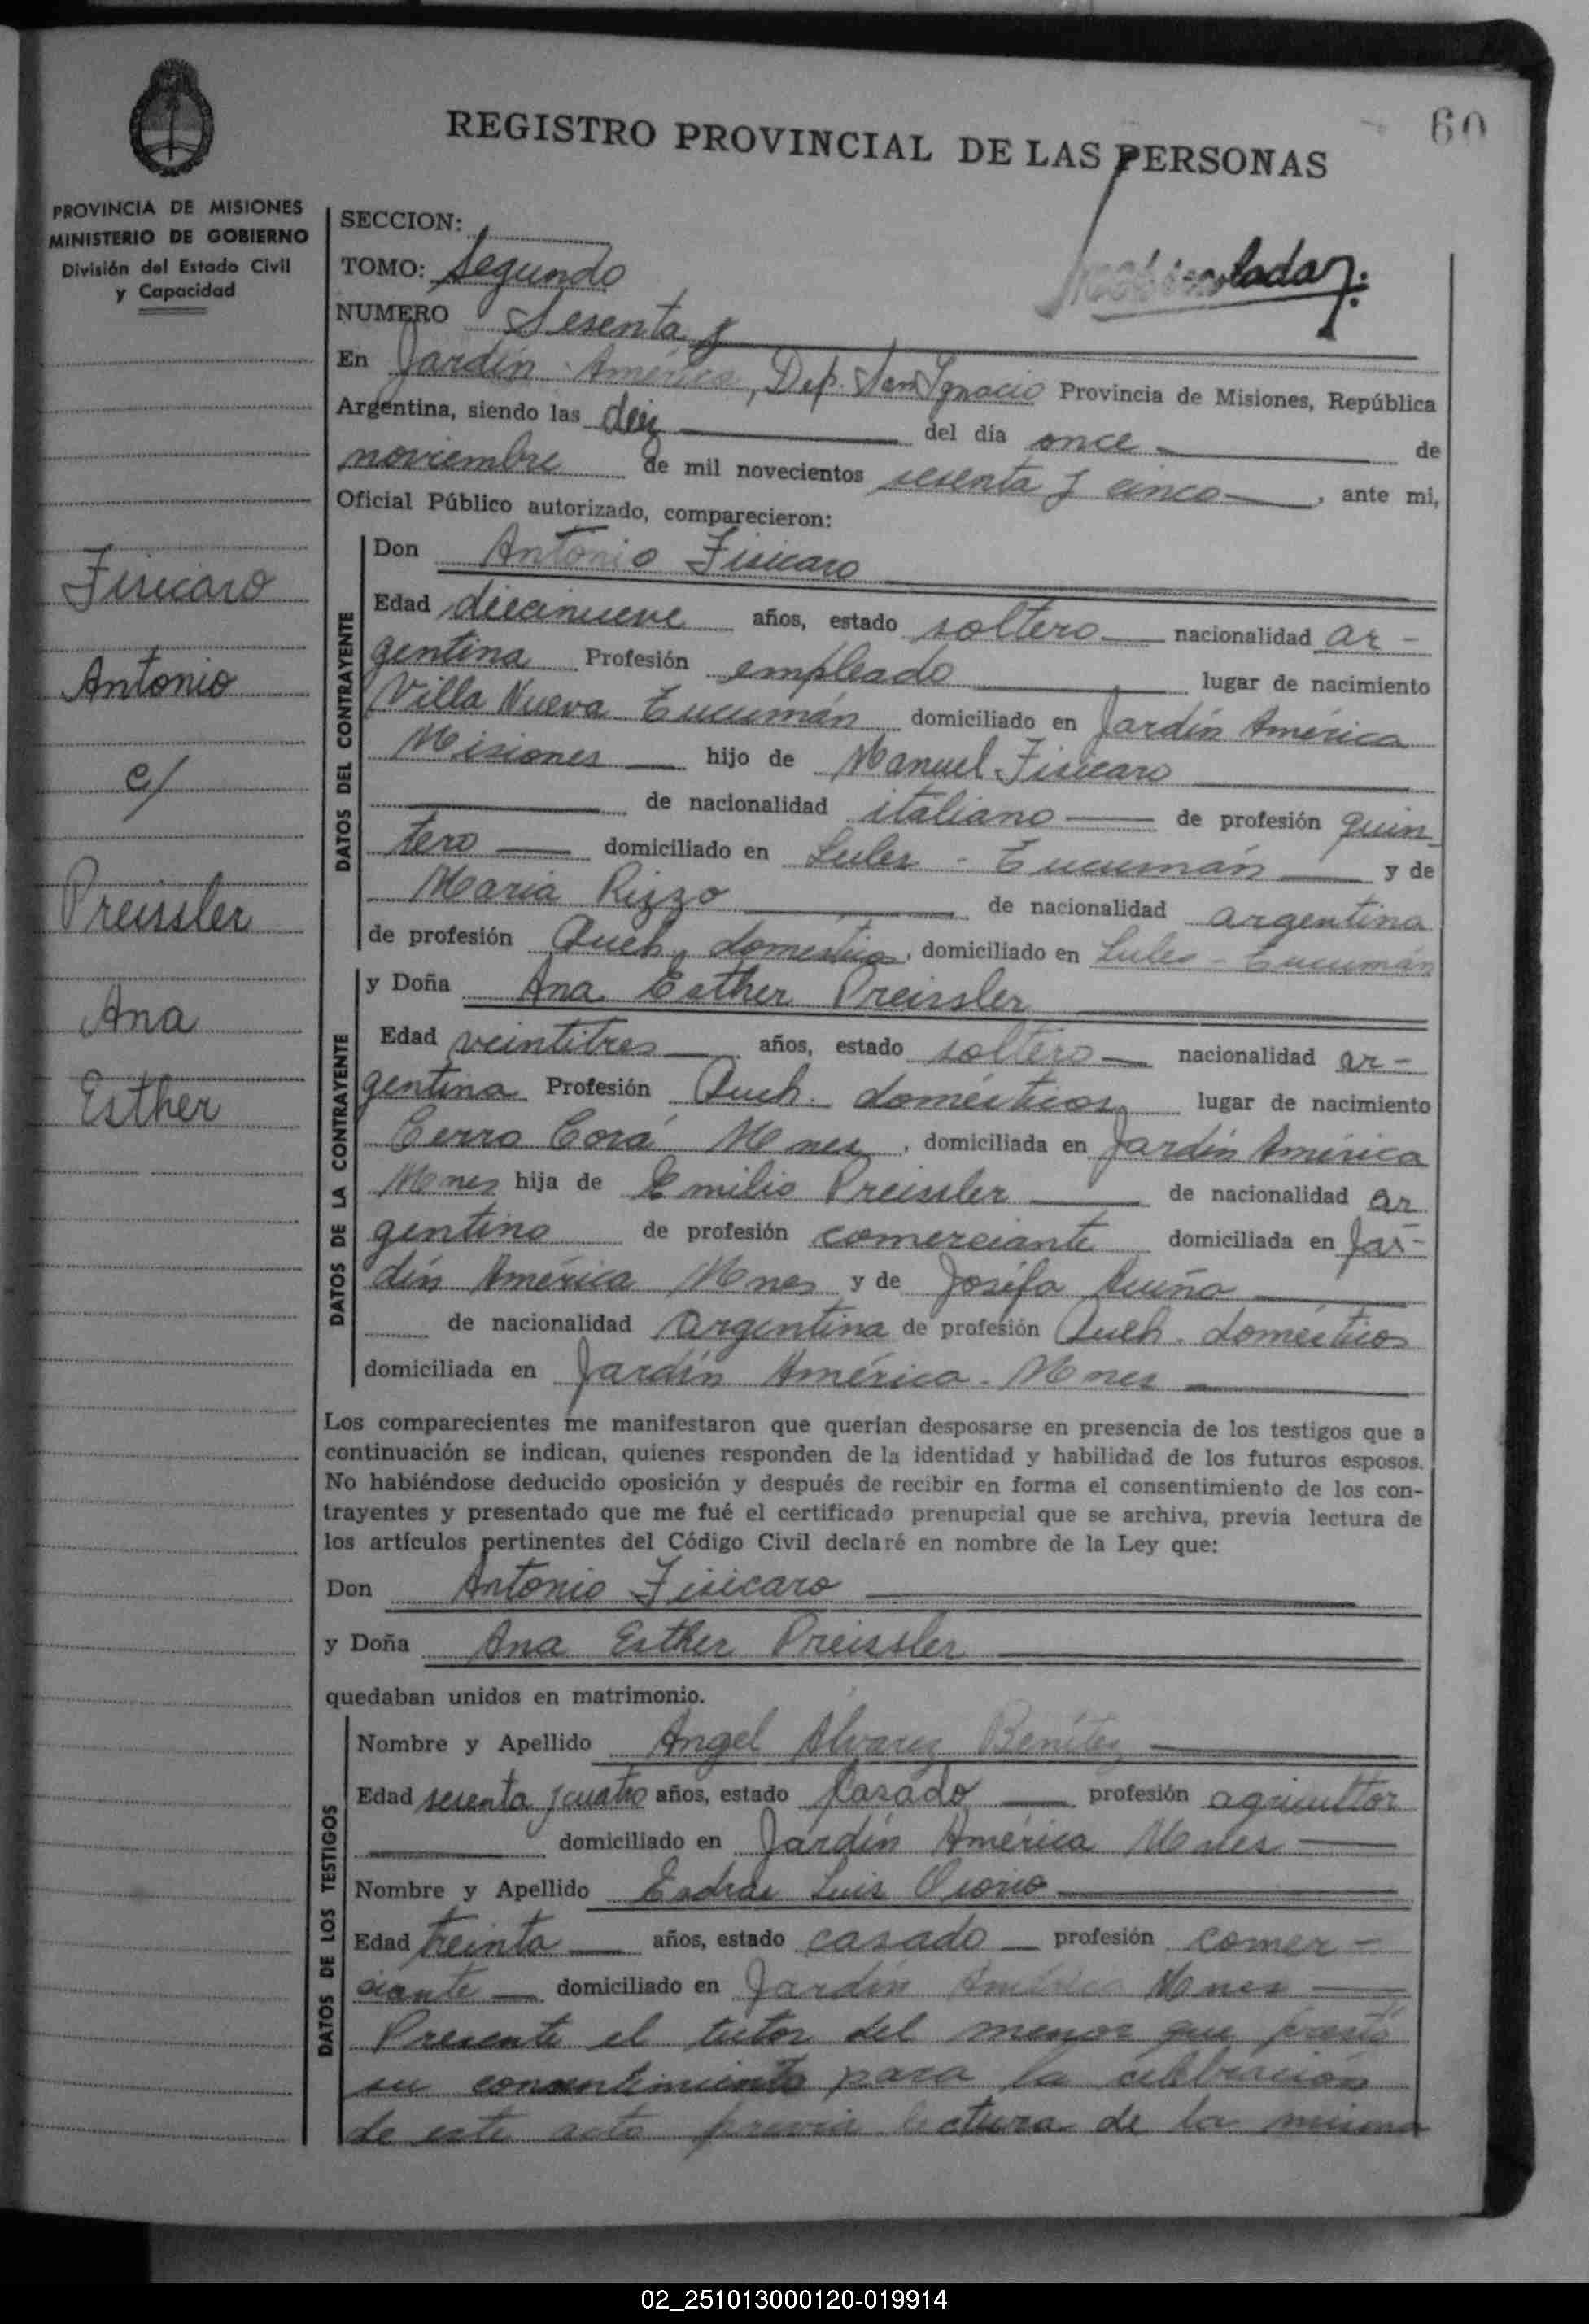 60
REGISTRO PROVINCIAL DE LAS PERSONAS
PROVINCIA DE MISIONES
MINISTERIO DE GOBIERNO
División del Estado Civil
y Capacidad
Fisicaro
Antonio
c/
Preissler
Ana
Esther
SECCION:
TOMO: Segundo
NUMERO Sesenta y
En Jardín América, Dep. San Ignacio Provincia de Misiones, República
Argentina, siendo las diez del día once de
noviembre de mil novecientos sesenta y cinco, ante mi,
Oficial Público autorizado, comparecieron:
DATOS DEL CONTRAYENTE
Don Antonio Fisicaro
Edad diecinueve años, estado soltero nacionalidad ar-
gentina Profesión empleado lugar de nacimiento
Villa Nueva Tucumán domiciliado en Jardín América
Misiones hijo de Manuel Fisicaro
de nacionalidad italiano de profesión quin
tero domiciliado en Lules - Tucumán y de
Maria Rizzo de nacionalidad argentina
de profesión Queh. domesticos, domiciliado en Lules - Tucumán
DATOS DE LA CONTRAYENTE
y Doña Ana Esther Preissler
Edad veintitres años, estado soltero nacionalidad ar-
gentina Profesión Queh. domésticos lugar de nacimiento
Cerro Corá Mones, domiciliada en Jardín América
Mones hija de Emilio Preissler de nacionalidad ar
gentino de profesión comerciante domiciliada en Jar-
dín América Mones y de Josefa Acuña
de nacionalidad argentina de profesión Queh. domésticos
domiciliada en Jardín América - Mones
Los comparecientes me manifestaron que querían desposarse en presencia de los testigos que a
continuación se indican, quienes responden de la identidad y habilidad de los futuros esposos.
No habiéndose deducido oposición y después de recibir en forma el consentimiento de los con-
trayentes y presentado que me fué el certificado prenupcial que se archiva, previa lectura de
los artículos pertinentes del Código Civil declaré en nombre de la Ley que:
Don Antonio Fisicaro
y Doña Ana Esther Preissler
quedaban unidos en matrimonio.
DATOS DE LOS TESTIGOS
Nombre y Apellido Angel Alvarez Benítez
Edad sesenta y cuatro años, estado Casado profesión agricultor
domiciliado en Jardín América Mones
Nombre y Apellido Esdras Luis Osorio
Edad treinta años, estado casado profesión comer-
ciante domiciliado en Jardín América Mones
Presente el tutor del menor que prestó
su consentimiento para la celebración
de este acto previa lectura de la misma
02_251013000120-019914